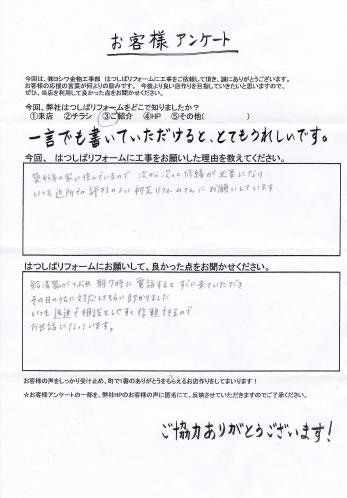 お客様 アンケート
今回は、㈱ヨシワ金物工事部 はつしばリフォームに工事をご依頼して頂き、誠にありがとうございます。
お客様の応援の言葉が何よりの励みです。 今後より良い店作りを目指していきたいと思いますので、
ぜひ、当店を利用して良かった点をお聞かせください。
今回、弊社はつしばリフォームをどこで知りましたか？
①来店 ②チラシ ③ご紹介 ④HP ⑤その他( )
一言でも書いていただけると、とてもうれしいです。
今回、 はつしばリフォームに工事をお願いした理由を教えてください。
築45年の家に住んでいるので 次から次へと修繕が必要になり
いつも近所での評判のよい初芝リフォームさんにお願いしています
はつしばリフォームにお願いして、良かった点をお聞かせください。
給湯器がつぶれ 朝7時に電話すると すぐに来ていただき
その日のうちに対応してもらい助かりました
いつも迅速で相談もしやすく信頼できるので
お世話になっています。
お客様の声をしっかり受け止め、町で1番のありがとうをもらえるお店作りをしてまいります！
☆お客様アンケートの一部を、弊社HPのお客様の声に匿名にて、反映させていただきますのでご了承ください。
ご協力ありがとうございます！